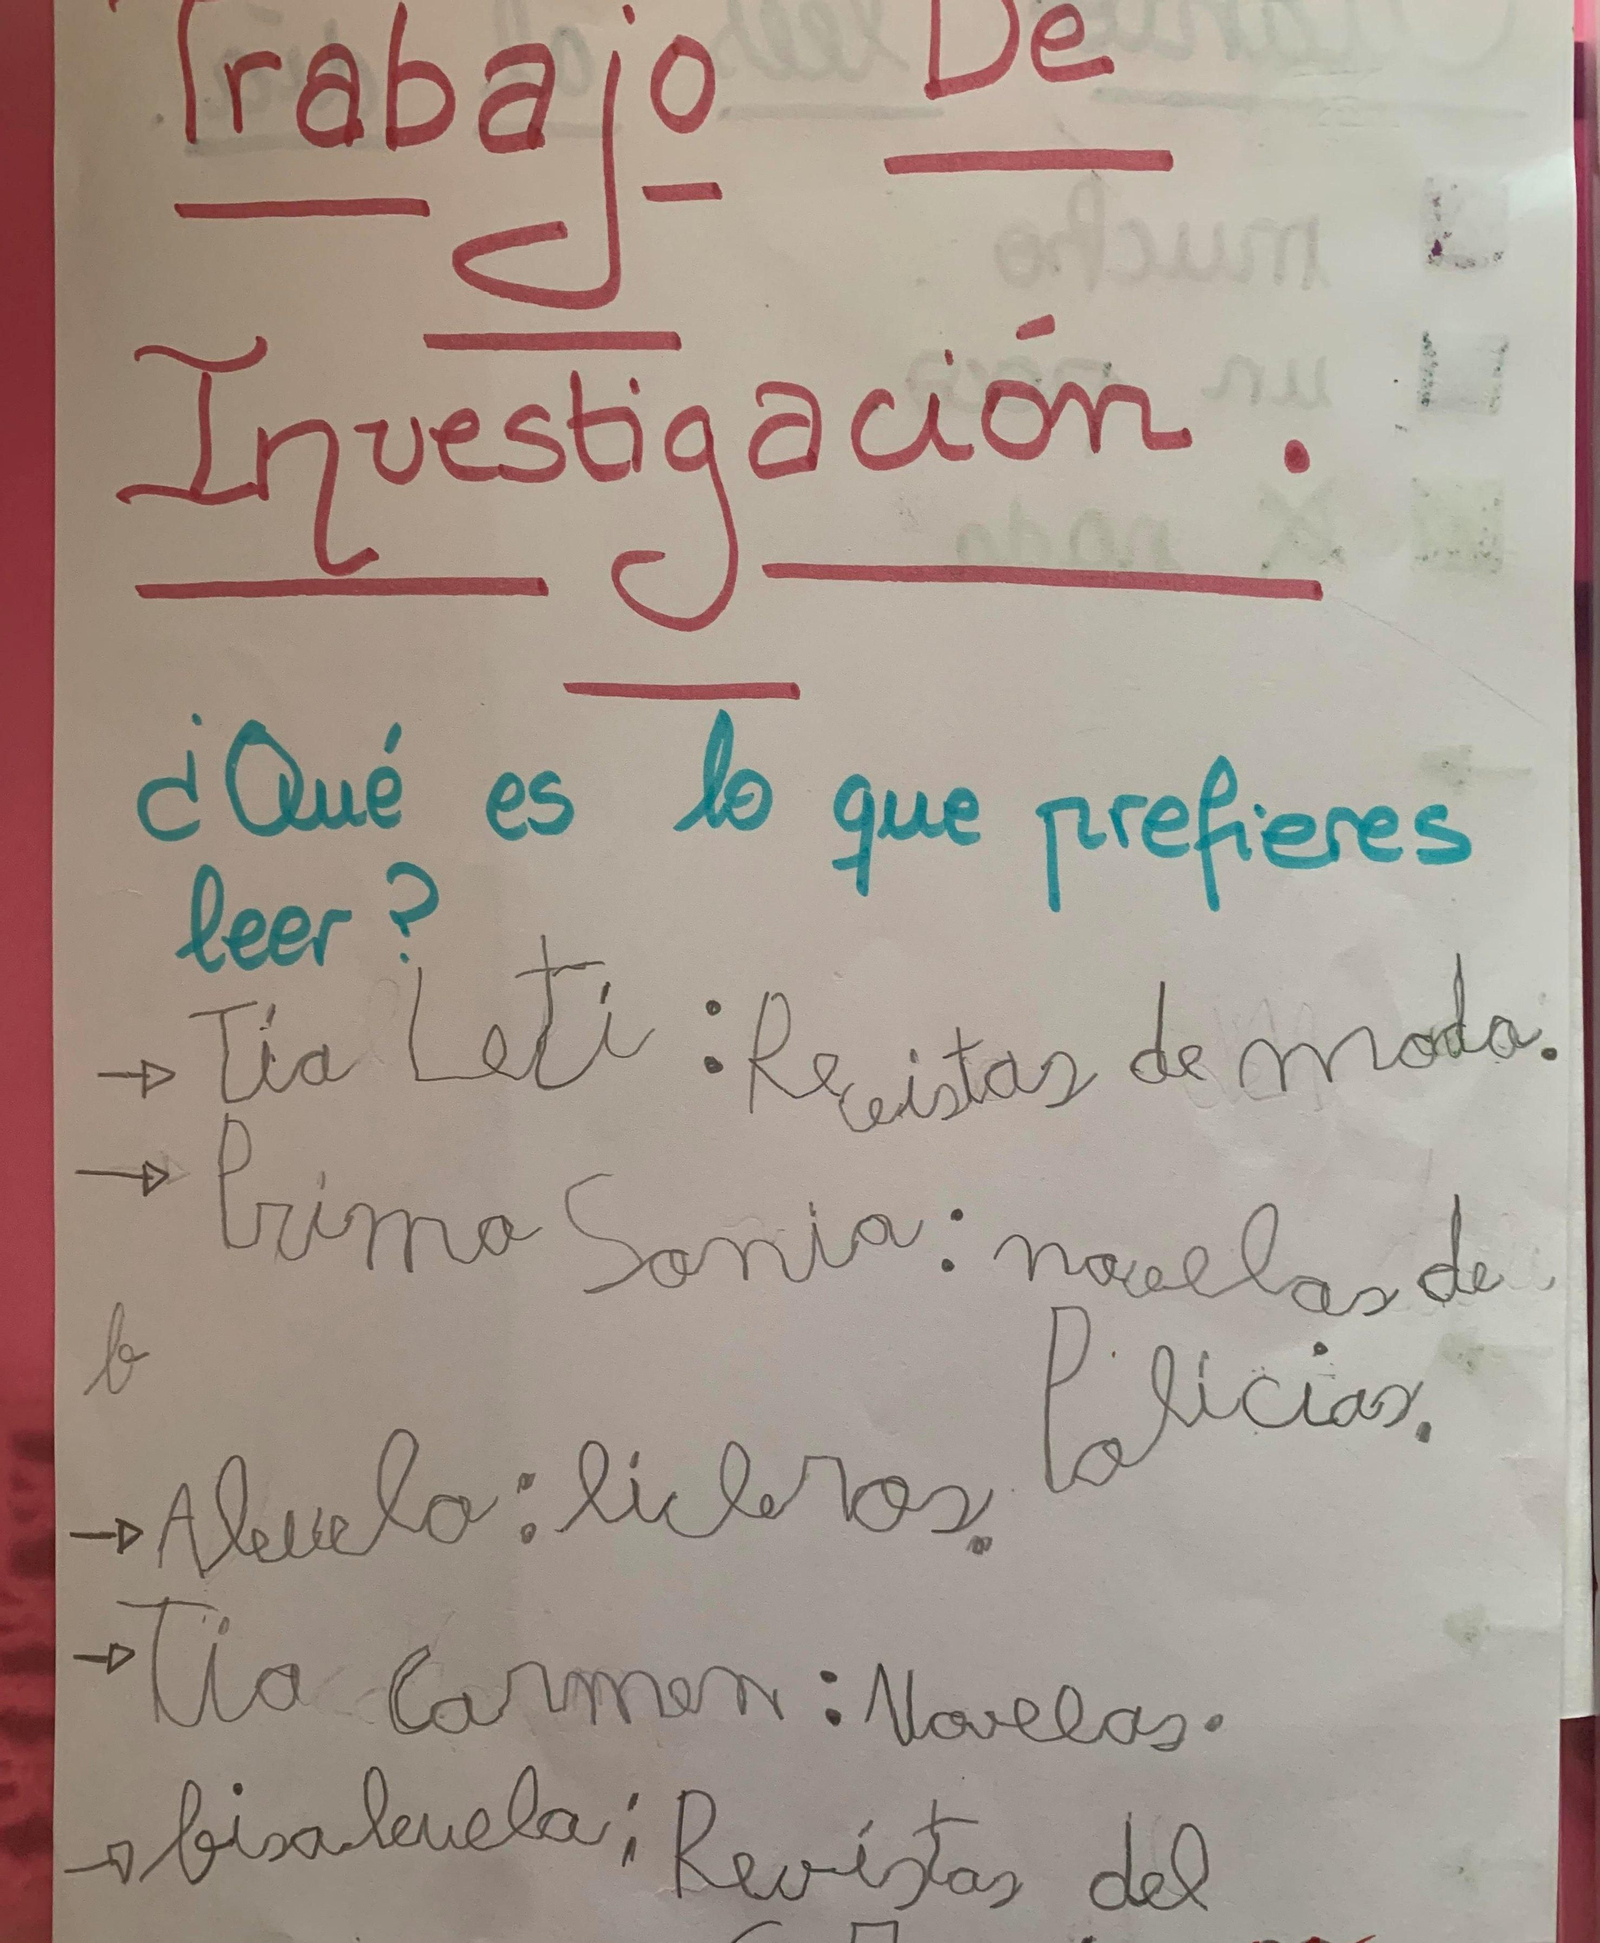 Trabajo De
Investigación.
¿Qué es lo que prefieres
leer?
→ Tía Leti : Revistas de moda.
→ Prima Sonia : novelas de
Policias.
b
→ Abuela : libros.
→ Tia Carmen : Novelas.
→ bisabuela : Revistas del